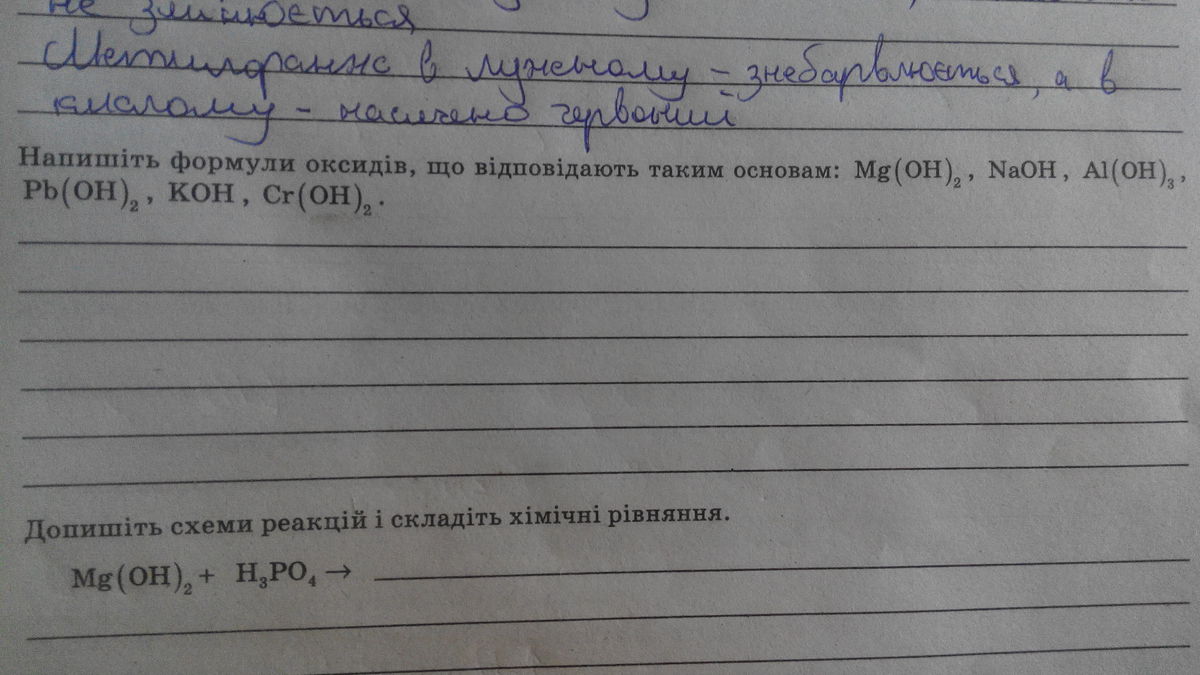 не змінюється
Метилоранж в лужному – знебарвлюється, а в
кислому – насичено червоний
Напишіть формули оксидів, що відповідають таким основам: Mg(OH)₂, NaOH, Al(OH)₃,
Pb(OH)₂, KOH, Cr(OH)₂.
Допишіть схеми реакцій і складіть хімічні рівняння.
Mg(OH)₂ + H₃PO₄ →